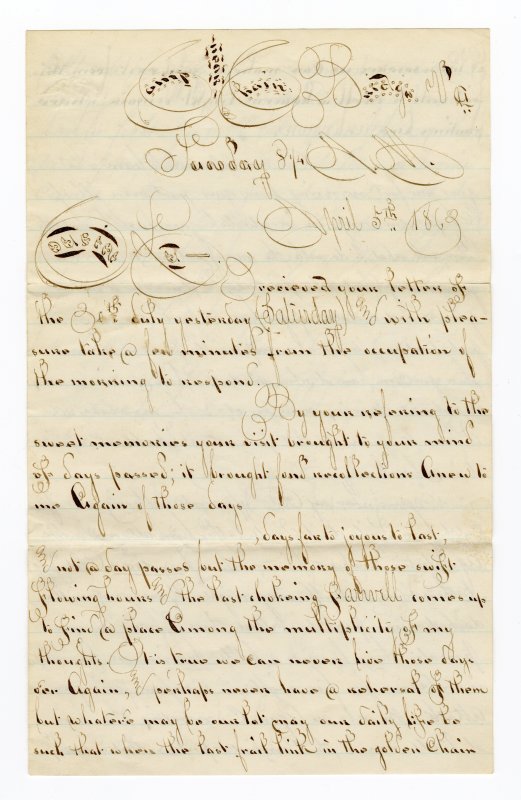 Camp near Chain Bridge Va
Sunday 8½ A.M.
April 5th 1863
I recieved your letter of
the 30th duly yesterday (Saturday) And with plea-
sure take @ few minutes from the occupation of
the morning to respond.
By your refering to the
sweet memories your visit brought to your mind
of days passed, it brought fond recollections Anew to
me Again of those days
, days far to joyous to last,
& not @ day passes but the memory of those swift
flowing hours And the last chokeing Farwell comes up
to find @ place Among the multiplicity of my
thoughts. It is true we can never live those days
oer Again, And perhaps never have @ rehersal of them
but whatere may be our lot may our daily life be
such that when the last frail link in the golden Chain